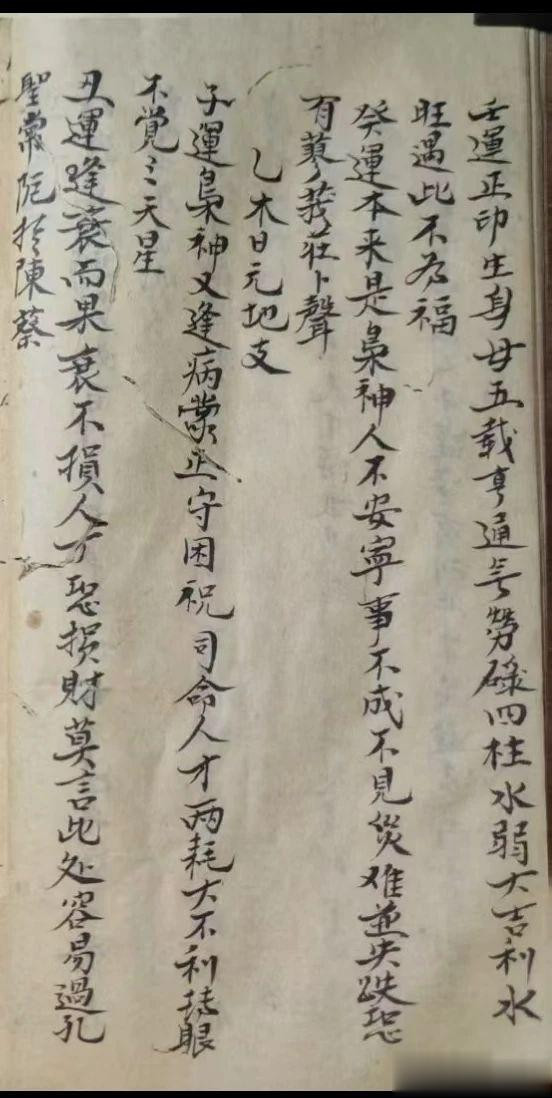 壬運正印生身母五載亨通無勞碌四柱水弱大吉利水
旺遇此不為福
癸運本来是梟神人不安寧事不成不見災难並失跌恐
有蓼莪莊卜聲
乙木日元地支
子運梟神又逢病蒙正守困祝司命人才两耗大不利转眼
不覺三天星
丑運逢衰而果衰不損人丁恐損財莫言此处容易過孔
聖嘗阨於陳蔡